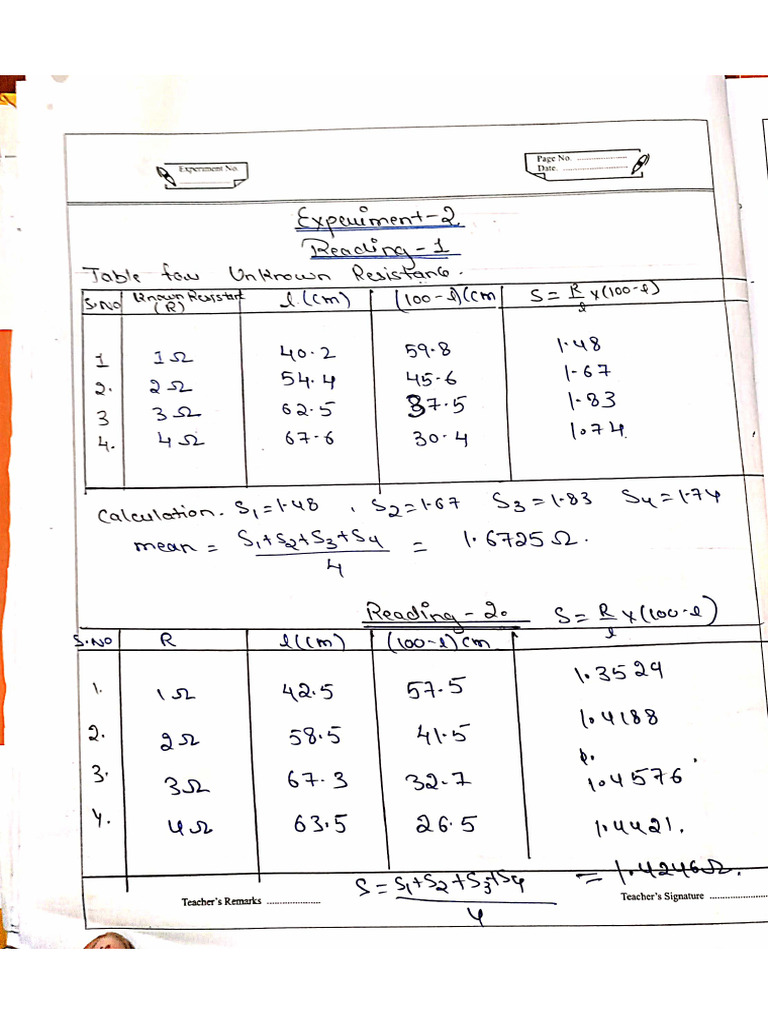 Experiment No.
Page No. ....................
Date. ....................
Experiment-2
Reading-1
Table for Unknown Resistance.
S.No Known Resistant (R) l (cm) (100-l)(cm S = R/l x(100-l)
1 1Ω 40.2 59.8 1.48
2. 2Ω 54.4 45.6 1.67
3 3Ω 62.5 37.5 1.83
4. 4Ω 67.6 30.4 1.74
Calculation. S1=1.48 , S2=1.67 S3=1.83 S4=1.74
mean = S1+S2+S3+S4/4 = 1.6725Ω.
Reading-2. S= R/l x(100-l)
S.No R l(cm) (100-l)cm
1. 1Ω 42.5 57.5 1.3529
2. 2Ω 58.5 41.5 1.4188
3. 3Ω 67.3 32.7 1.4576
4. 4Ω 63.5 26.5 1.4421.
S= S1+S2+S3+S4/4 = 1.4246Ω.
Teacher's Remarks ....................
Teacher's Signature ....................